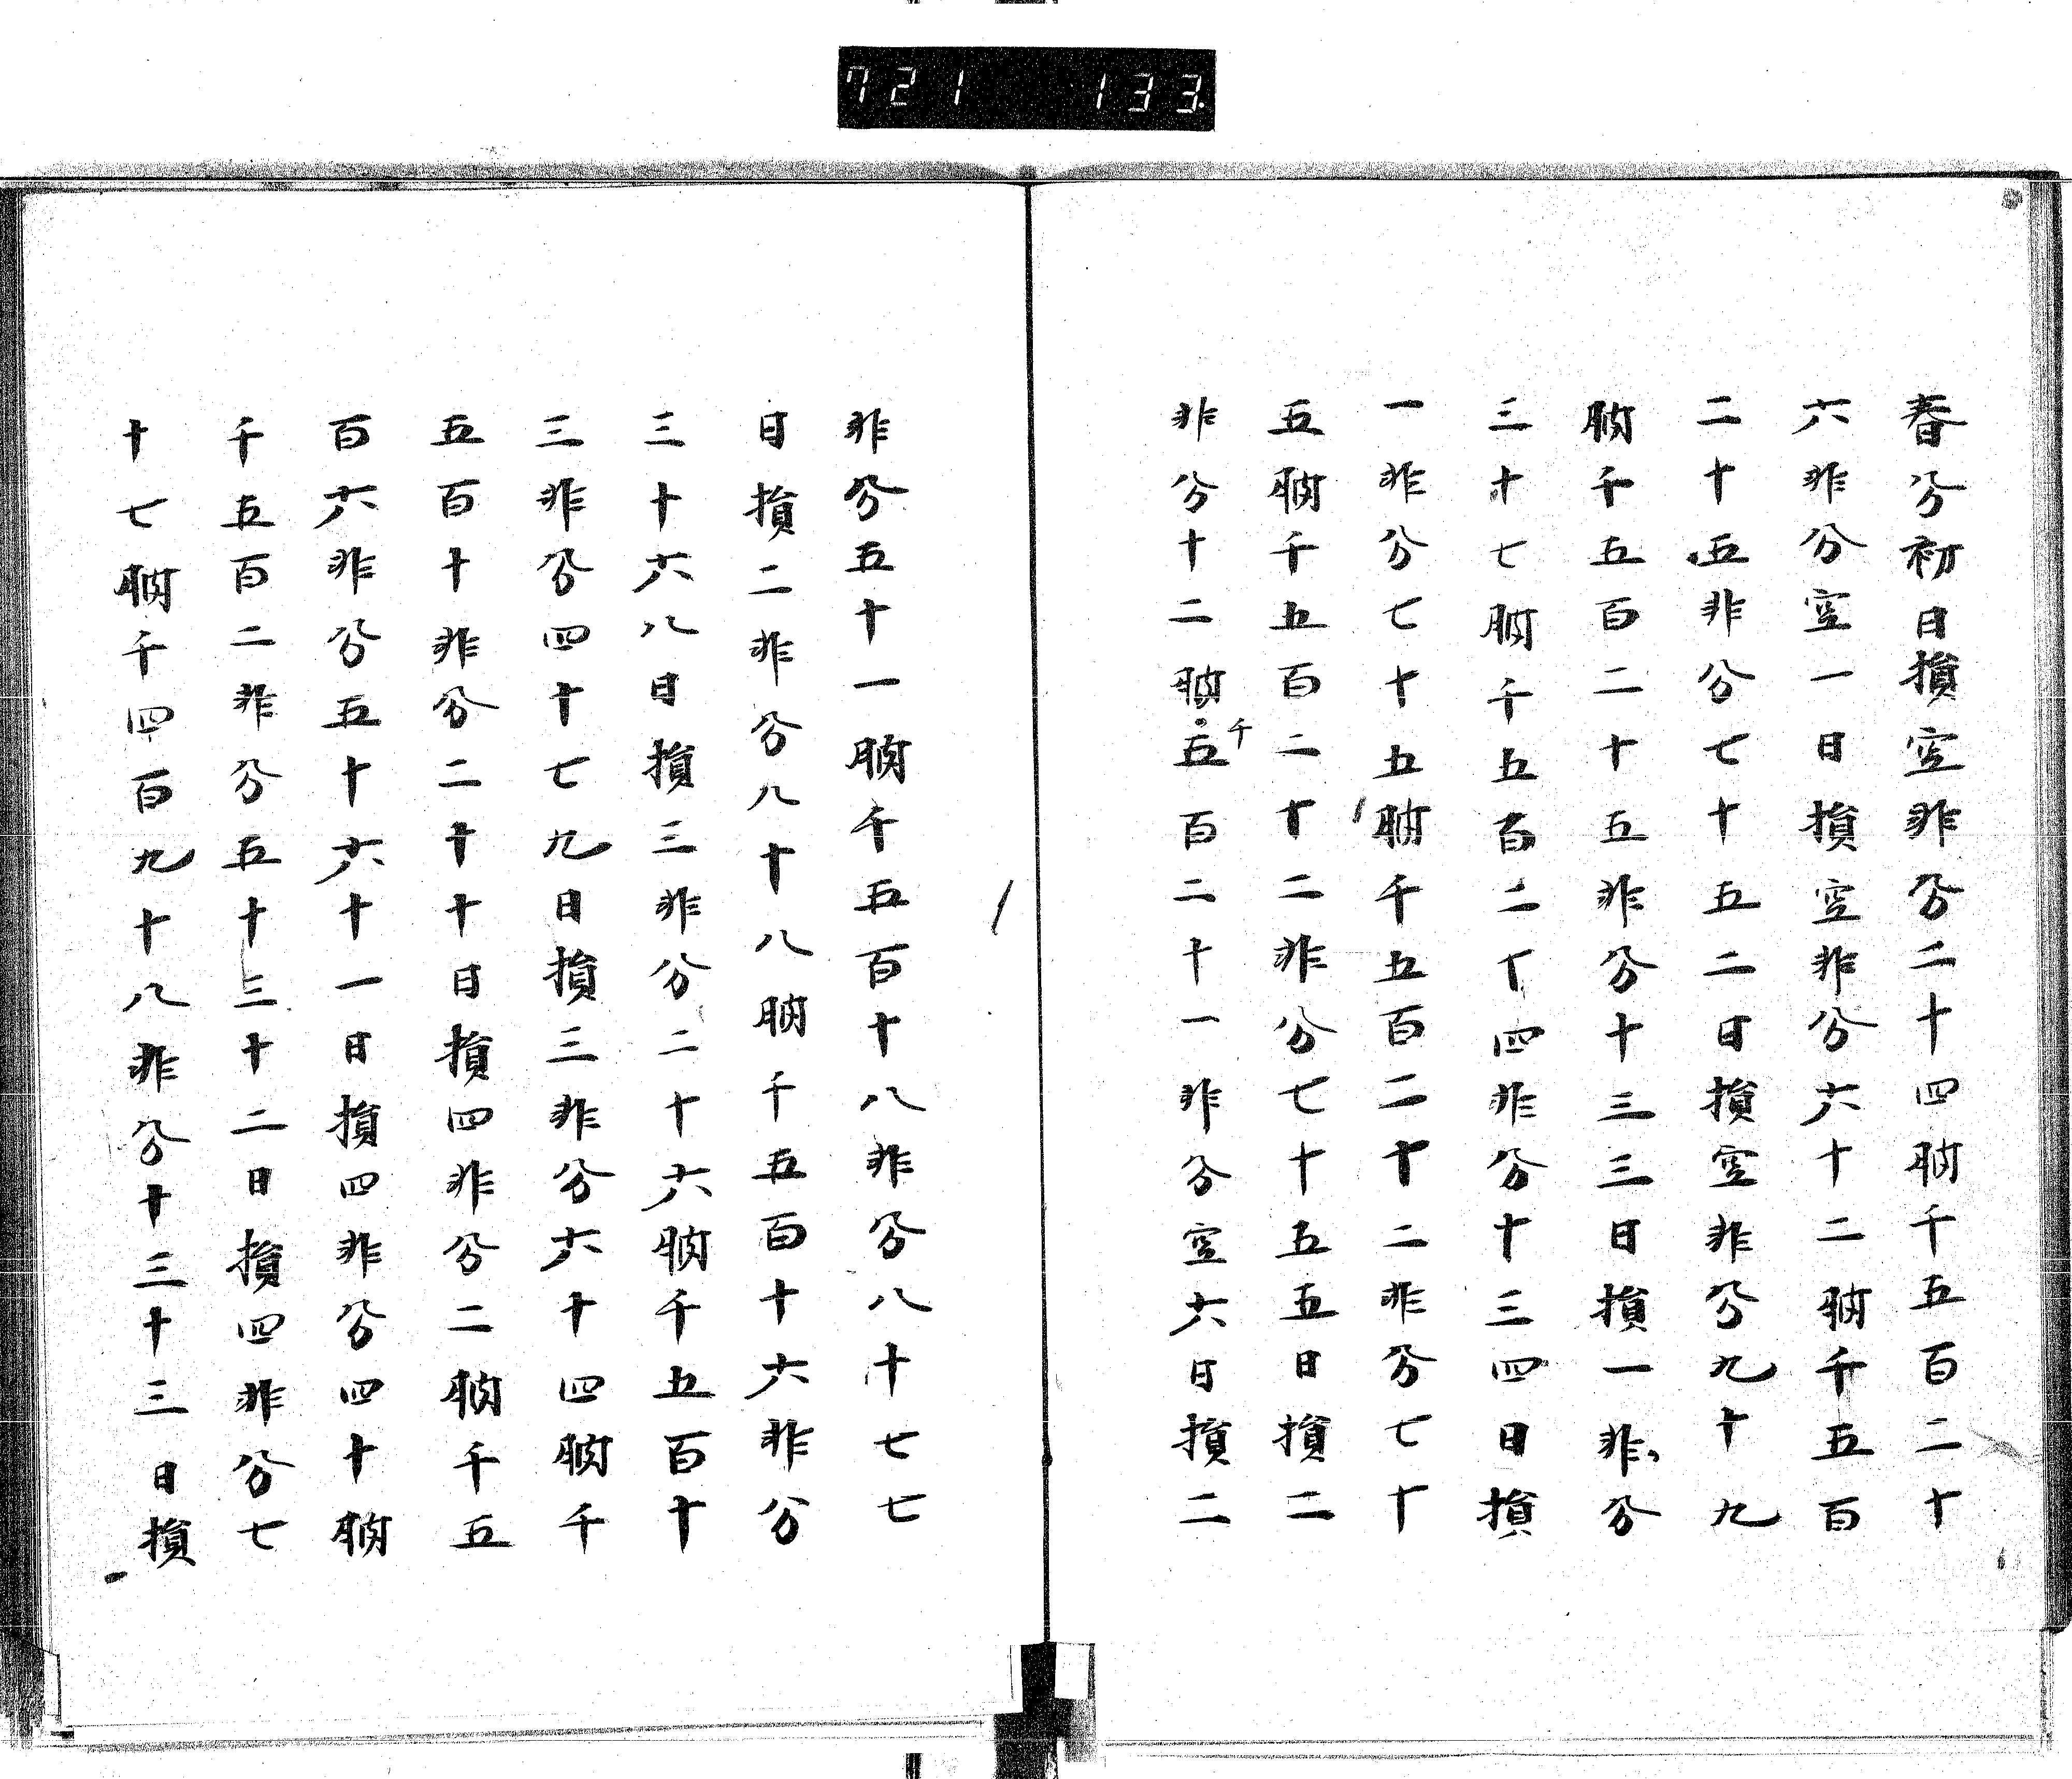 721 133.
春分初日損空非分二十四朒千五百二十
六非分空一日損空非分六十二朒千五百
二十五非分七十五二日損空非分九十九
朒千五百二十五非分十三三日損一非分
三十七朒千五百二十四非分十三四日損
一非分七十五朒千五百二十二非分七十
五朒千五百二十二非分七十五五日損二
非分十二朒千五百二十一非分空六日損二
非分五十一朒千五百十八非分八十七七
日損二非分八十八朒千五百十六非分
三十六八日損三非分二十六朒千五百十
三非分四十七九日損三非分六十四朒千
五百十非分二十十日損四非分二朒千五
百六非分五十六十一日損四非分四十朒
千五百二非分五十三十二日損四非分七
十七朒千四百九十八非分十三十三日損